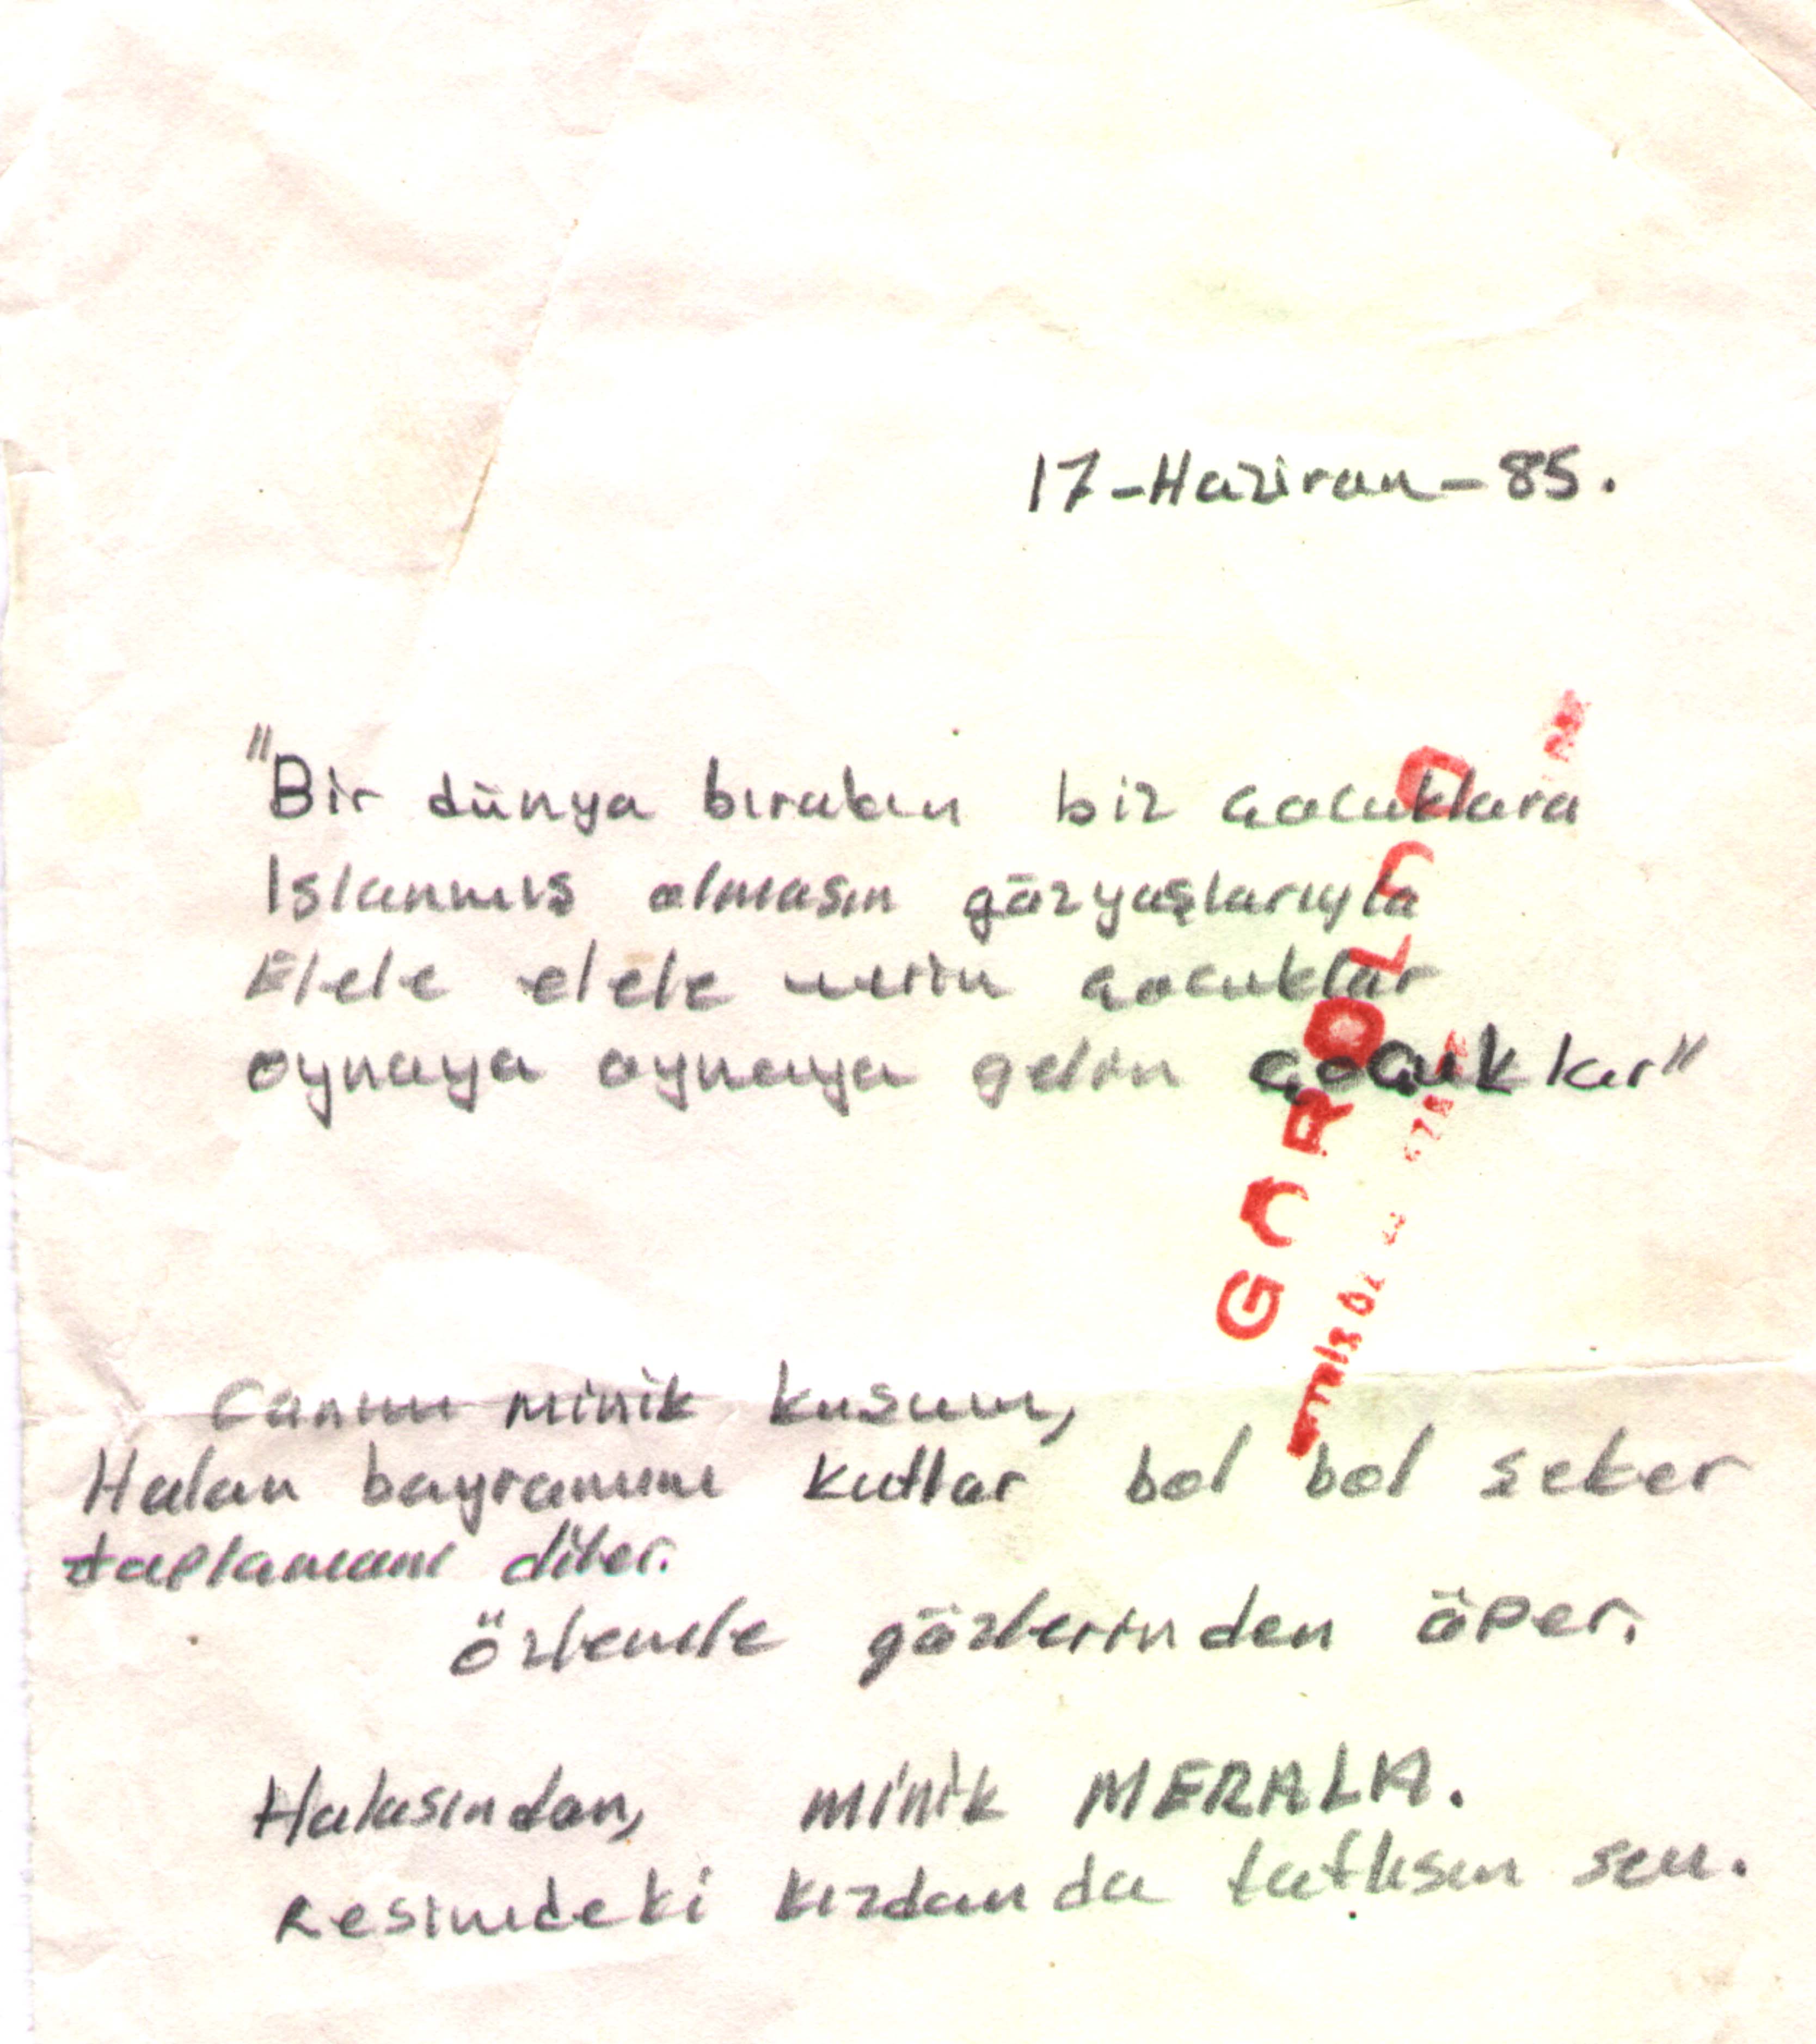 17-Haziran-85.
"Bir dünya bırakın biz çocuklara
Islanmış olmasın gözyaşlarıyla
Elele elele verin çocuklar
oynaya oynaya gelin çocuklar"
GÖRÜLDÜ
Canım minik kuşum,
Halan bayramını kutlar bol bol şeker
toplamanı diler.
Özlemle gözlerinden öper.
Halasından, minik MERALA.
Resimdeki kızdan da tatlısın sen.